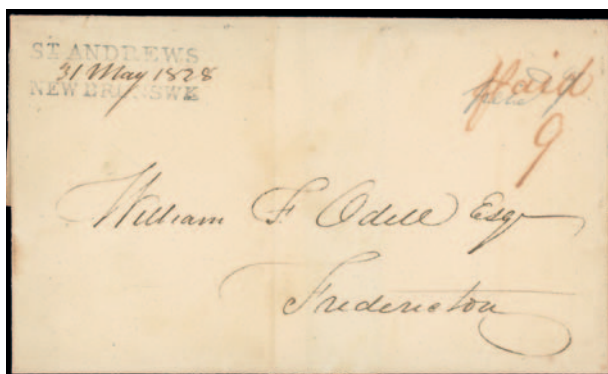 ST ANDREWS
31 May 1828
NEW BRUNSWK
Paid
9
William F. Odell Esqr
Fredericton